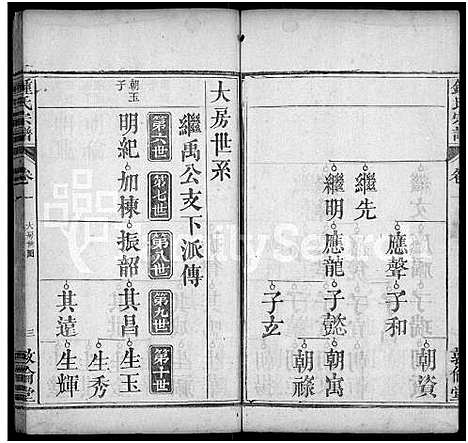 鍾氏宗譜
卷一
繼先
應聲
子和
朝資
繼明
應龍
子懿
朝寓
朝祿
子玄
敦倫堂
大房世系
繼禹公支下派傳
第六世
第七世
第八世
第九世
第十世
朝玉子
明紀
加棟
振韶
其昌
生玉
生秀
其遠
生輝
鍾氏宗譜
卷一
大房世圖
三
敦倫堂